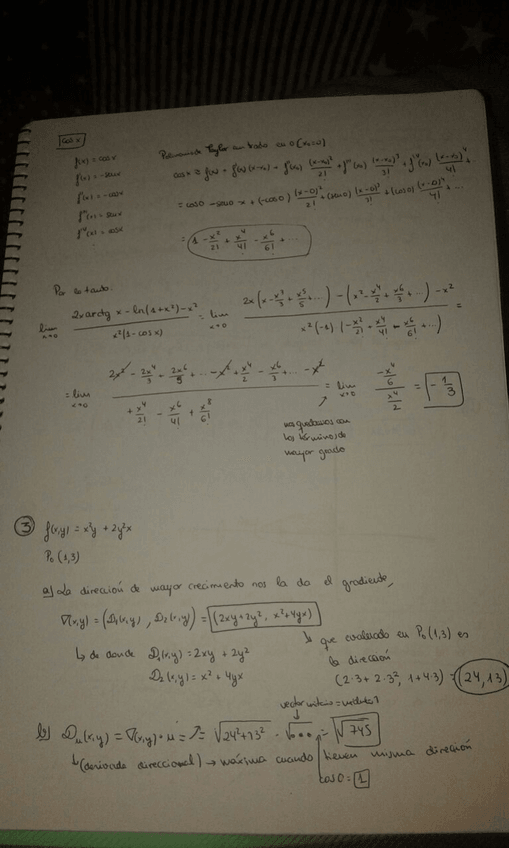 cos x
f(x) = cos x
f'(x) = -sen x
f''(x) = -cos x
f'''(x) = sen x
f''''(x) = cos x
Polinomio de Taylor centrado en 0 (x₀=0)
cos x ≈ f(x₀) + f'(x₀)(x-x₀) + f''(x₀) (x-x₀)²/2! + f'''(x₀) (x-x₀)³/3! + f''''(x₀) (x-x₀)⁴/4! + ...
= cos 0 - sen 0 · x + (-cos 0) (x-0)²/2! + (sen 0) (x-0)³/3! + (cos 0) (x-0)⁴/4! + ...
= 1 - x²/2! + x⁴/4! - x⁶/6! + ...
Por lo tanto:
lim x→0 (2x arctg x - ln(1+x²) - x²) / (x²(1-cos x)) = lim x→0 (2x (x - x³/3 + x⁵/5 + ...) - (x² - x⁴/2 + x⁶/3 + ...) - x²) / (x²(-1) (-x²/2! + x⁴/4! - x⁶/6! + ...)) =
= lim x→0 (2x² - 2x⁴/3 + 2x⁶/5 + ... - x² + x⁴/2 - x⁶/3 + ... - x²) / (+ x⁴/2! - x⁶/4! + x⁸/6!) = lim x→0 (-x⁴/6) / (x⁴/2) = -1/3
nos quedamos con
los términos de
mayor grado
③ f(x,y) = x²y + 2y²x
P₀ (1,3)
a) La dirección de mayor crecimiento nos la da el gradiente,
∇(x,y) = (D₁(x,y), D₂(x,y)) = (2xy+2y², x²+4yx)
↳ de donde D₁(x,y) = 2xy + 2y²
D₂(x,y) = x² + 4yx
↳ que evaluado en P₀(1,3) es
la dirección
(2·3 + 2·3², 1+4·3) = (24,13)
vector unitario = módulo 1
b) Dᵤ(x,y) = ∇(x,y) · u = = √(24²+13²) · = √745
↳ (derivada direccional) → máxima cuando tienen misma dirección
cos 0 = 1